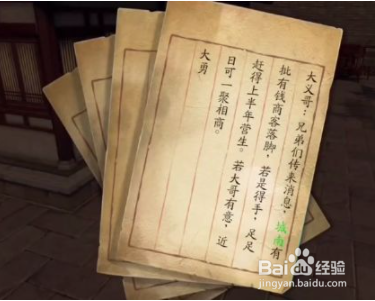 大义哥：兄弟们传来消息，城南有
批有钱商客落脚，若是得手，足足
赶得上半年营生。若大哥有意，近
日可一聚相商。
大勇
Baidu经验
jingyan.baidu.com